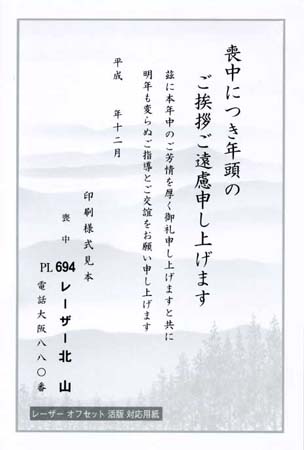 喪中につき年頭の
ご挨拶ご遠慮申し上げます
茲に本年中のご芳情を厚く御礼申し上げますと共に
明年も変らぬご指導とご交誼をお願い申し上げます
平成　　年十二月
印刷様式見本
喪中
PL 694 レーザー北山
電話大阪八八〇番
レーザー オフセット 活版 対応用紙